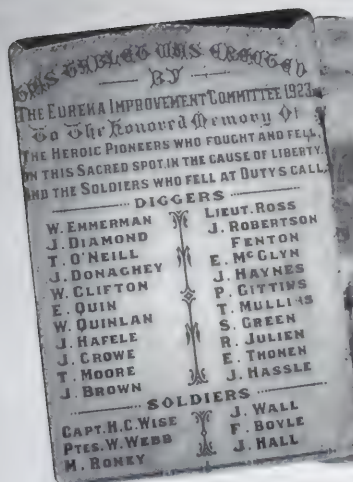 THIS TABLET WAS ERECTED
BY
THE EUREKA IMPROVEMENT COMMITTEE 1923
To The Honored Memory Of
THE HEROIC PIONEERS WHO FOUGHT AND FELL,
ON THIS SACRED SPOT, IN THE CAUSE OF LIBERTY,
AND THE SOLDIERS WHO FELL AT DUTYS CALL.
DIGGERS
W. EMMERMAN
J. DIAMOND
T. O'NEILL
J. DONAGHEY
W. CLIFTON
E. QUIN
W. QUINLAN
J. HAFELE
J. CROWE
T. MOORE
J. BROWN
LIEUT. ROSS
J. ROBERTSON
FENTON
E. McGLYN
J. HAYNES
P. GITTINS
T. MULLINS
S. GREEN
R. JULIEN
E. THONEN
J. HASSLE
SOLDIERS
CAPT. H. C. WISE
PTES. W. WEBB
M. RONEY
J. WALL
F. BOYLE
J. HALL